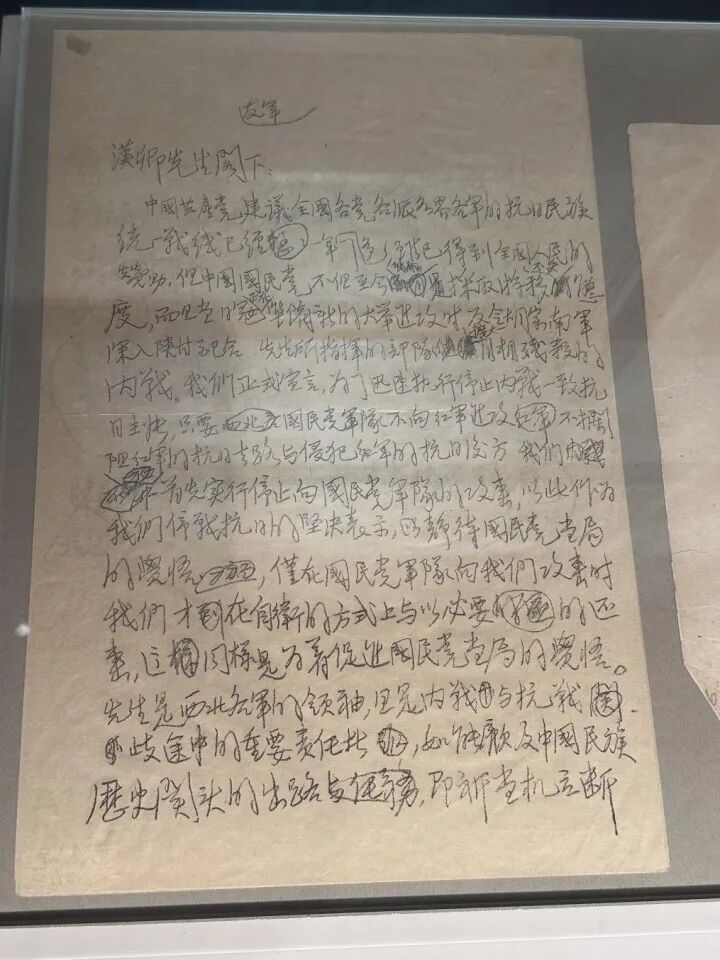 友军
汉卿先生阁下：
中国共产党建议全国各党各派各界各军的抗日民族
统一战线已经一年了多，得到全国人民的
赞助。但中国国民党不但至今采取持移态
度，而且当日寇准备新的大举进攻时反令胡宗南军
深入陕甘配合先生所指挥的部队自相残杀的
内战。我们正式宣言，为了迅速执行停止内战一致抗
日主张，只要西北国民党军队不向红军进攻不拦
阻红军的抗日去路与侵犯红军的抗日后方我们
首先实行停止向国民党军队的攻击，以此作为
我们停战抗日的坚决表示，以静待国民党当局
的觉悟，仅在国民党军队向我们攻击时
我们才在自卫的方式上与以必要的还
击，这同样是为着促进国民党当局的觉悟。
先生是西北各军的领袖，且是内战与抗战
歧途中的重要责任者，如能顾及中国民族
历史关头的出路与，即祈当机立断